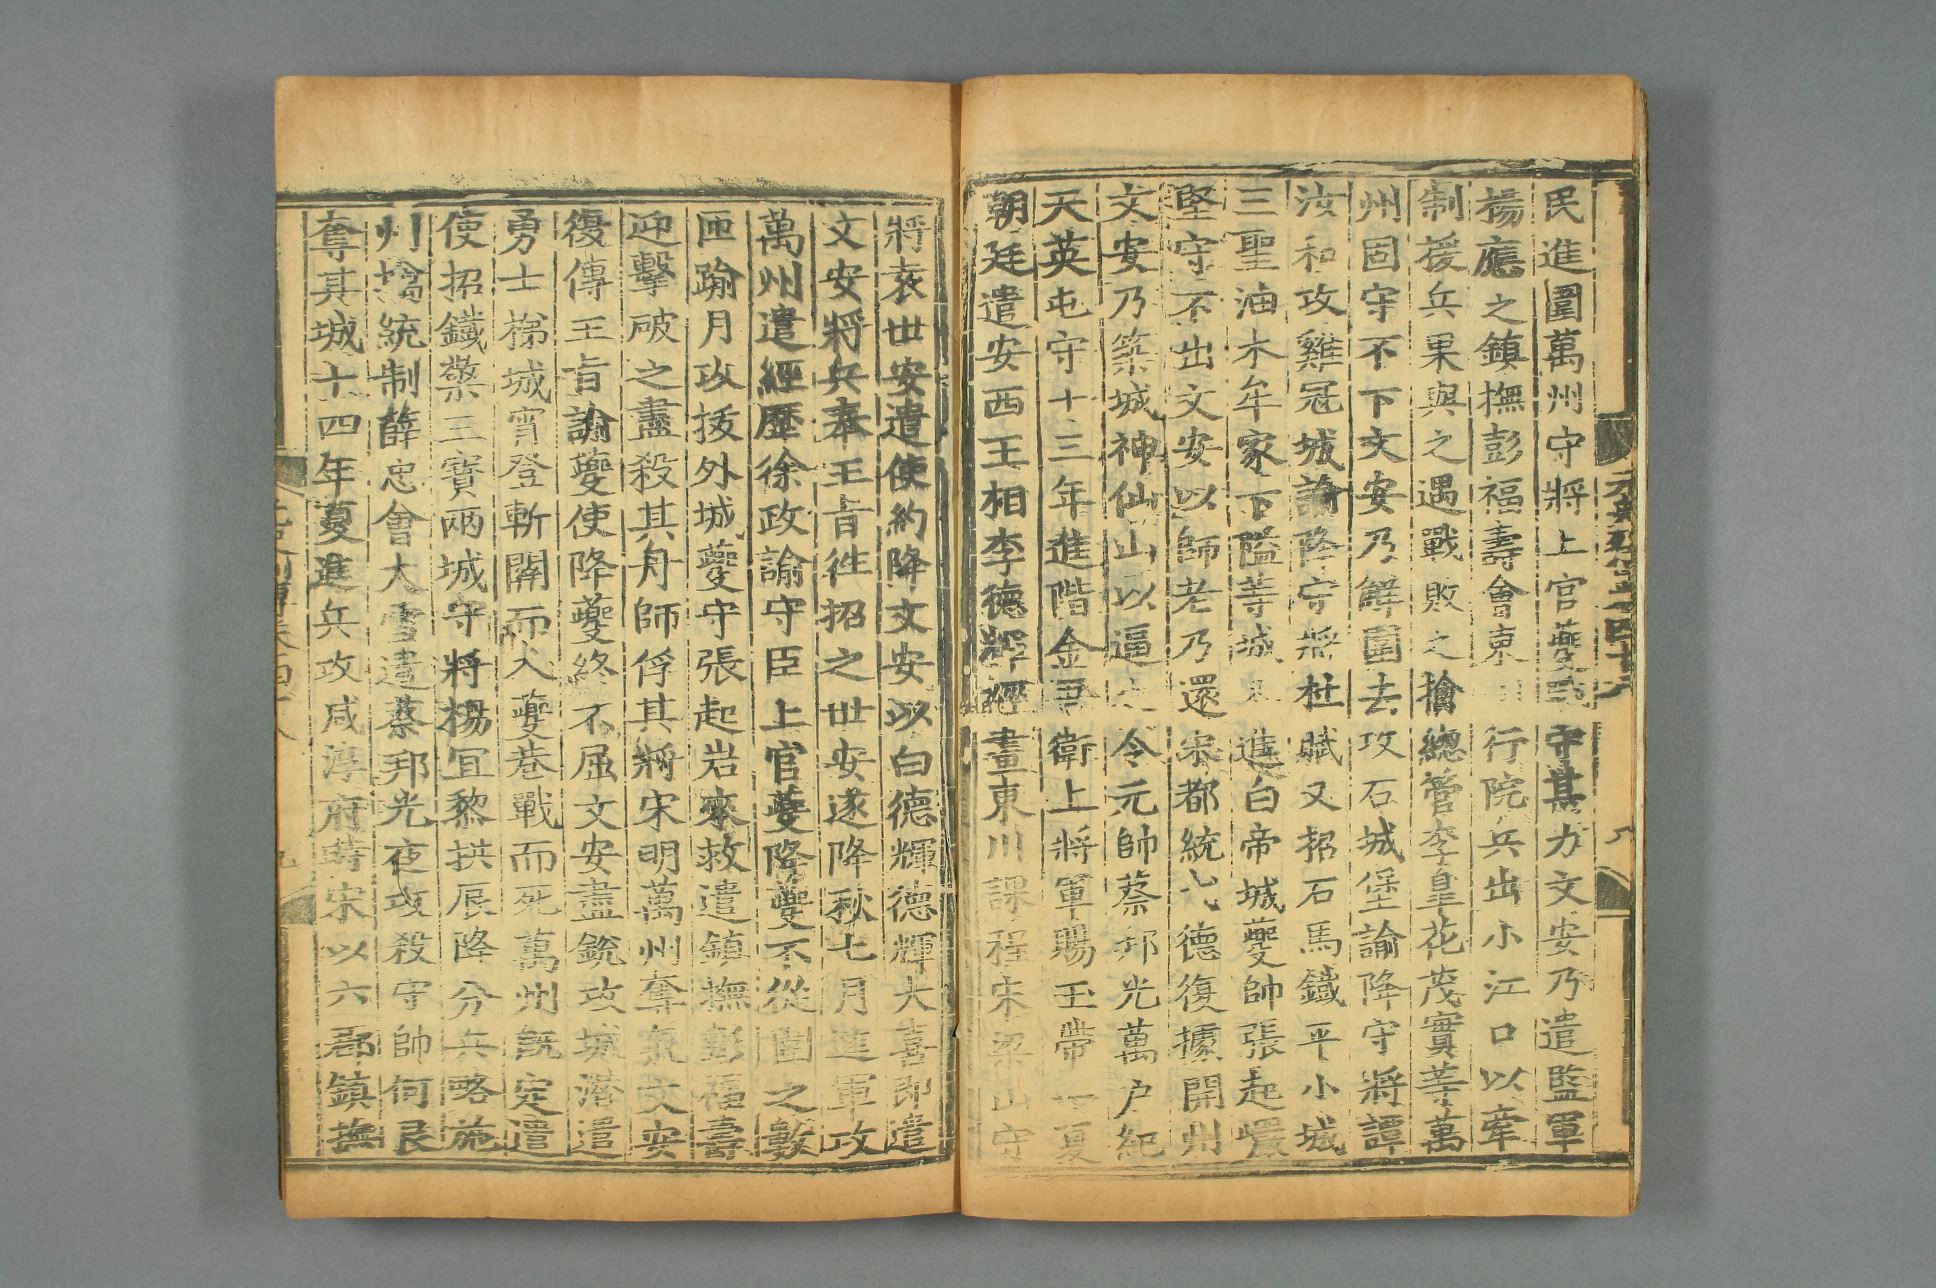 民進圍萬州守將上官夔守甚力文安乃遣監軍
楊應之鎮撫彭福壽會東川行院兵出小江口以牽
制援兵果與之遇戰敗之擒總管李皇花茂實等萬
州固守不下文安乃解圍去攻石城堡諭降守將譚
汝和攻雞冠城諭降守將杜賦又招石馬鐵平小城
三聖油木牟家下隘等城進白帝城夔帥張起巖
堅守不出文安以師老乃還宋都統弋德復據開州
文安乃築城神仙山以逼之令元帥蔡邦光萬户紀
天英屯守十三年進階金吾衛上將軍賜玉帶一夏
朝廷遣安西王相李德輝經畫東川課程宋梁山守
將袁世安遣使約降文安以白德輝德輝大喜即遣
文安將兵奉王㫖徃招之世安遂降秋七月進軍攻
萬州遣經歴徐政諭守臣上官夔降夔不從圍之數
匝踰月攻拔外城夔守張起岩來救遣鎮撫彭福壽
迎擊破之盡殺其舟師俘其將宋明萬州奪氣文安
復傳王㫖諭夔使降夔終不屈文安盡鋭攻城潜遣
勇士梯城宵登斬關而入夔巷戰而死萬州既定遣
使招鐵檠三寶兩城守將楊宜黎拱辰降分兵略施
州擒統制薛忠會大雪遣蔡邦光夜攻殺守帥何良
奪其城十四年夏進兵攻咸淳府時宋以六郡鎮撫